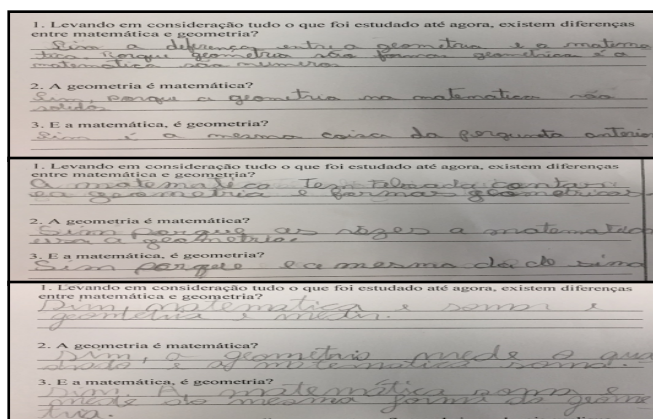 1. Levando em consideração tudo o que foi estudado até agora, existem diferenças
entre matemática e geometria?
Sim a deferença entre a geometria e a matema
tica. Porque geometria são formas geometrica e a
matematica são numeros
2. A geometria é matemática?
Sim, porque a geometria na matematica são
solidos
3. E a matemática, é geometria?
Sim é a mesma coisa da pergunta anterio
1. Levando em consideração tudo o que foi estudado até agora, existem diferenças
entre matemática e geometria?
A matematica Tem contas
e a geometria e formas geometricas
2. A geometria é matemática?
Sim porque as vezes a matematica
usa a geometria.
3. E a matemática, é geometria?
Sim porque e a mesma da de sima
1. Levando em consideração tudo o que foi estudado até agora, existem diferenças
entre matemática e geometria?
Sim, matematica e somar e
geometria e medir.
2. A geometria é matemática?
Sim, a geometria mede o qua
drado e a matematica soma.
3. E a matemática, é geometria?
Sim. A matemática soma e
mede da mesma forma da geome
tria.